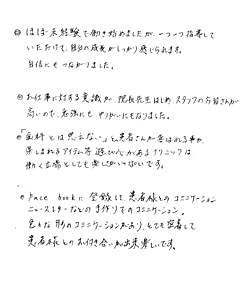 ◎ ほぼ未経験で働き始めましたが、一つ一つ指導して
いただけて、自分の成長がしっかり感じられます。
自信にもつながりました。
◎ お仕事に対する意識が、院長先生はじめ、スタッフの方皆さんが
高いので、勉強にも、やりがいにもなりました。
◎ 「歯科とは思えない」と患者さんが言われる事や、
楽しまれるアイテム等 遊び心があるクリニックは
働く立場としても楽しさいっぱいです。
◎ Face bookに登録して、患者様とのコミニケーション
ニュースレターなどの手作りでのコミニケーション。
色んな形のコミニケーションがあり、とても密着して
患者様とのお付き合いが出来嬉しいです。